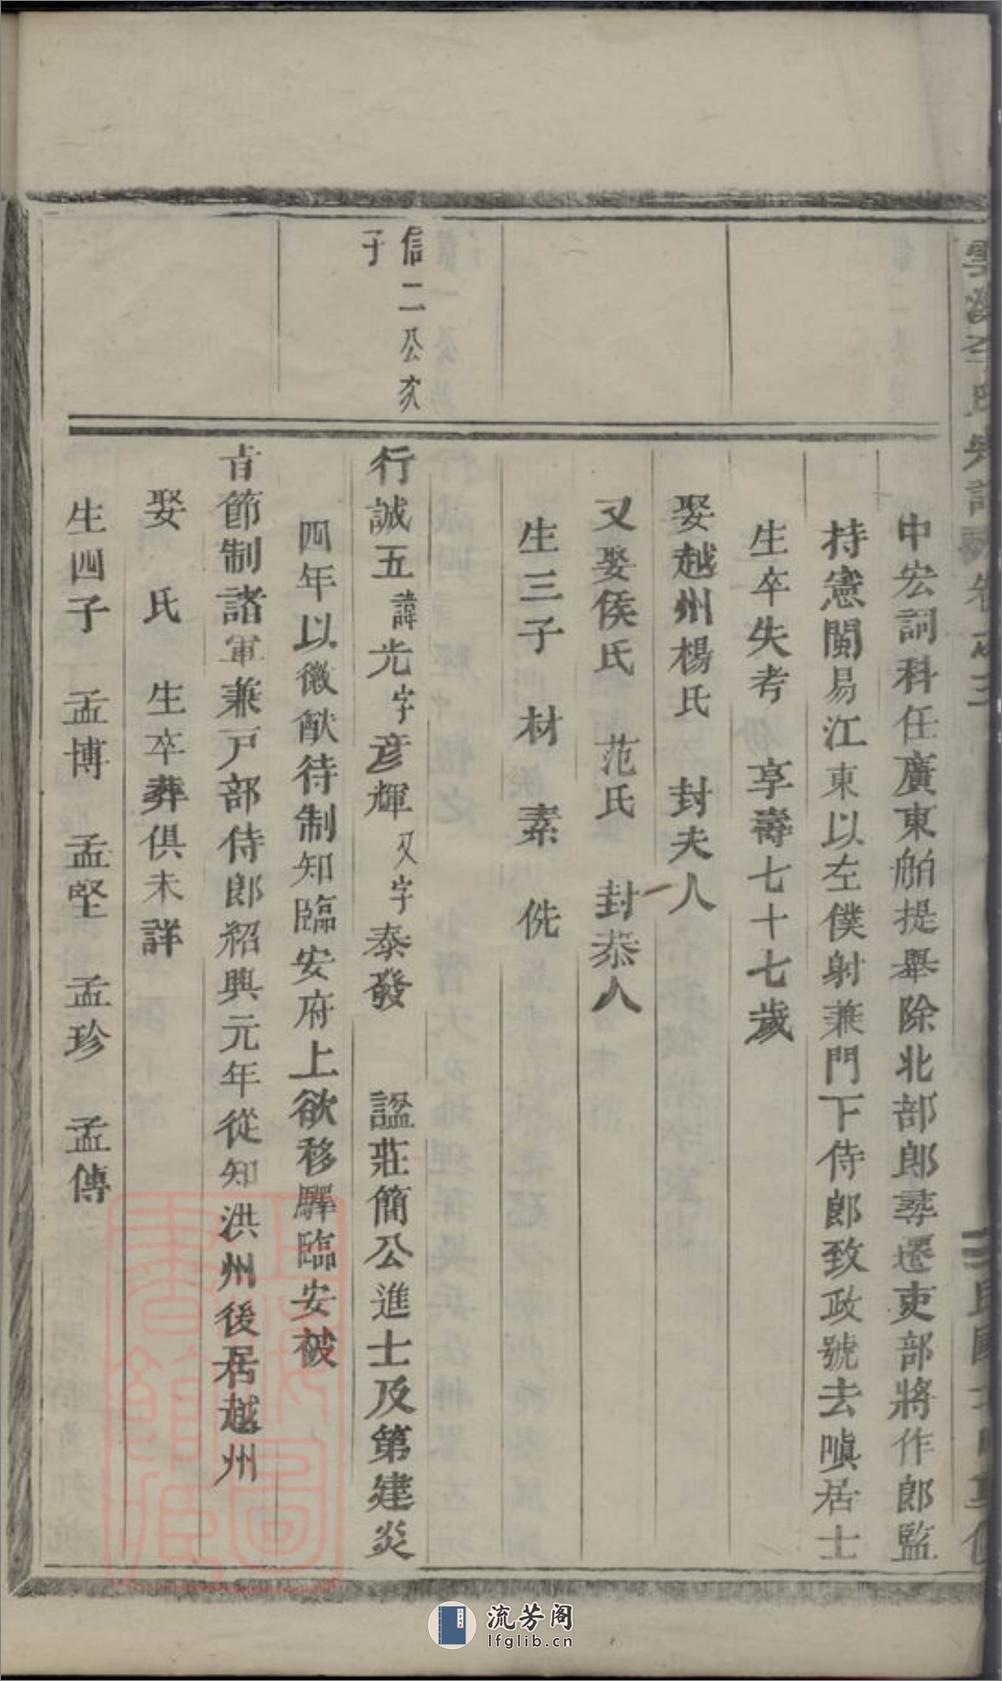 中宏詞科任廣東舶提舉除北部郎尋遷吏部將作郎監
持憲閩易江東以左僕射兼門下侍郎致政號去嗔居士
生卒失考享壽七十七歲
娶越州楊氏 封夫人
又娶侯氏 范氏 封恭人
生三子 材 素 侁
信二公次
子
行誠五諱光字彦輝又字泰發 謚莊簡公進士及第建炎
四年以徽猷待制知臨安府上欲移驛臨安被
旨節制諸軍兼戸部侍郎紹興元年從知洪州後居越州
娶 氏 生卒葬俱未詳
生四子 孟博 孟堅 孟珍 孟傳
流芳阁
lfglib.cn